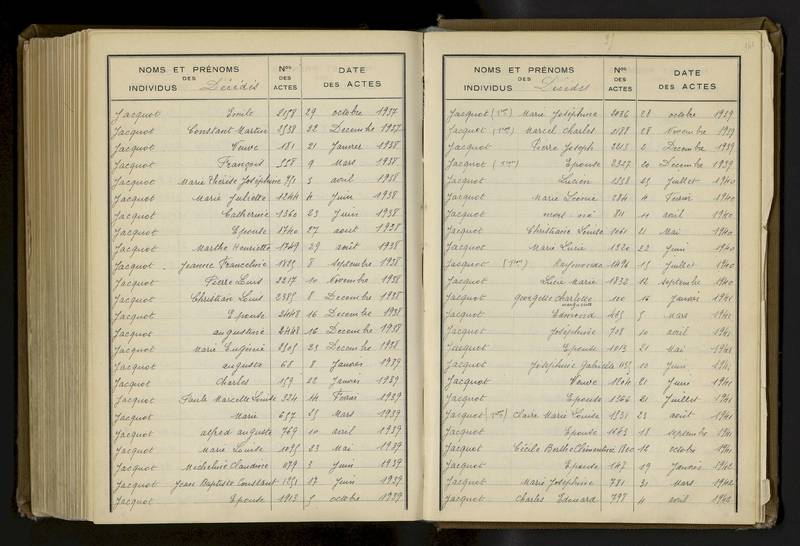 NOMS ET PRÉNOMS
DES
INDIVIDUS Décédés
Nos
DES
ACTES
DATE
DES ACTES
Jacquot Emile 2158 29 octobre 1937
Jacquot Constant Martin 2538 22 Decembre 1937
Jacquot Veuve 181 21 Janvier 1938
Jacquot François 558 9 Mars 1938
Jacquot Marie Thérèse Joséphine 3 avril 1938
Jacquot Marie Juliette 1244 4 Juin 1938
Jacquot Catherine 1360 23 Juin 1938
Jacquot Epouse 1740 27 aout 1938
Jacquot Marthe Henriette 1749 29 août 1938
Jacquot Jeanne Franceline 1825 8 septembre 1938
Jacquot Pierre Louis 2217 10 Novembre 1938
Jacquot Christian Louis 2385 8 Decembre 1938
Jacquot Epouse 2448 16 Decembre 1938
Jacquot augustine 2448 16 Decembre 1938
Jacquot Marie Eugénie 2505 23 Decembre 1938
Jacquot auguste 68 8 Janvier 1939
Jacquot Charles 159 22 Janvier 1939
Jacquot Paule Marcelle Louise 334 14 Fevrier 1939
Jacquot Marie 657 25 Mars 1939
Jacquot alfred auguste 769 10 avril 1939
Jacquot Marie Louise 1095 23 Mai 1939
Jacquot Micheline Claudine 1179 3 Juin 1939
Jacquot Jean Baptiste Constant 1251 17 Juin 1939
Jacquot Epouse 1913 5 octobre 1939
NOMS ET PRÉNOMS
DES
INDIVIDUS Décédés
Nos
DES
ACTES
DATE
DES ACTES
Jacquot Marie Joséphine 2086 28 octobre 1939
Jacquot Marcel Charles 2188 28 Novembre 1939
Jacquot Pierre Joseph 2213 2 Decembre 1939
Jacquot Epouse 2327 20 Decembre 1939
Jacquot Lucien 1538 25 Juillet 1940
Jacquot Marie Léonie 284 4 Fevrier 1940
Jacquot mort-né 811 10 avril 1940
Jacquot Christiane Louise 1061 21 Mai 1940
Jacquot Marie Lucie 1320 22 Juin 1940
Jacquot Raymonde 1496 15 Juillet 1940
Jacquot Lucie Marie 1832 12 septembre 1940
Jacquot Georgette Charlotte 100 16 Janvier 1941
Jacquot Edmond 465 5 Mars 1941
Jacquot Joséphine 708 10 avril 1941
Jacquot Epouse 1013 21 Mai 1941
Jacquot Joséphine Gabrielle 1135 10 Juin 1941
Jacquot Veuve 1204 21 Juin 1941
Jacquot Epouse 1366 21 Juillet 1941
Jacquot Claire Marie Louise 1531 23 août 1941
Jacquot Epouse 1643 18 septembre 1941
Jacquot Cécile Berthe Clémentine 1800 12 octobre 1941
Jacquot Epouse 147 19 Janvier 1942
Jacquot Marie Joséphine 781 31 Mars 1942
Jacquot Charles Edouard 798 4 avril 1942